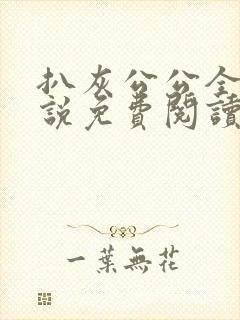 扒灰公公全
説免費閱讀
一葉無花